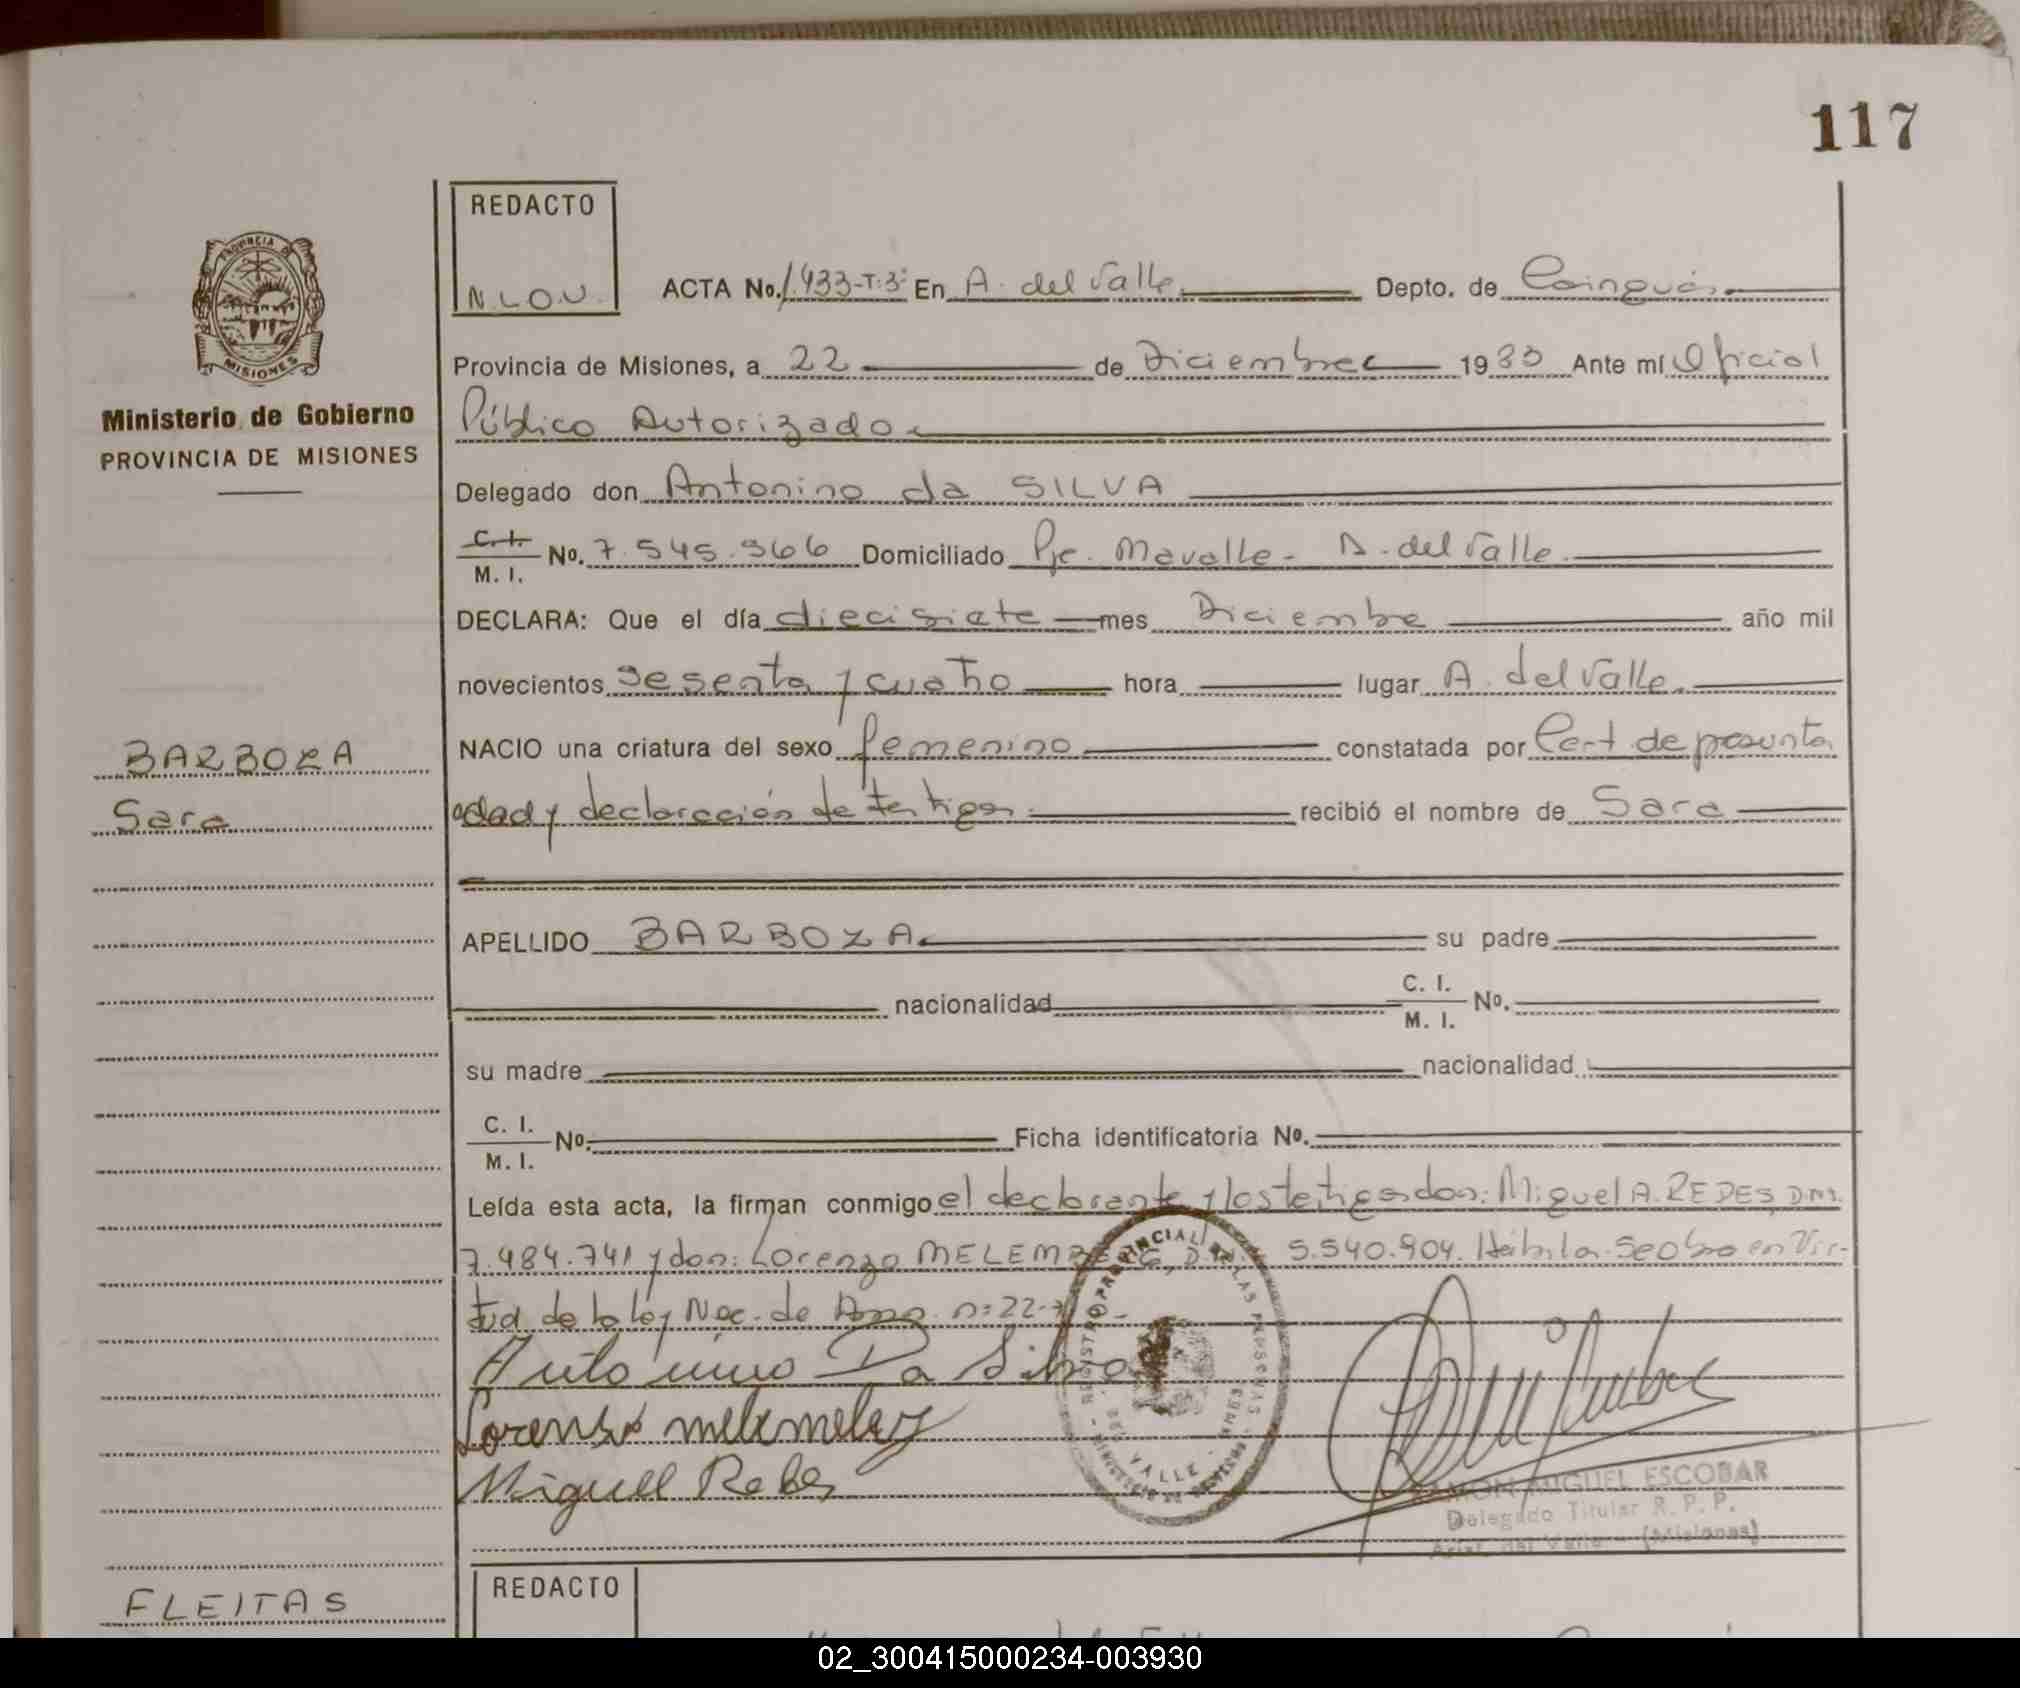 117
REDACTO
N.L.O.U.
ACTA No. 1.433-T:3º En A. del Valle Depto. de Cainguás
Provincia de Misiones, a 22 de Diciembre 1983 Ante mí Oficial
Ministerio de Gobierno
PROVINCIA DE MISIONES
Público Autorizado
Delegado don Antonino da SILVA
C. I. / M. I. No. 7.545.966 Domiciliado Pje. Mavalle - A. del Valle
DECLARA: Que el día diecisiete mes Diciembre año mil
novecientos sesenta y cuatro hora lugar A. del Valle
BARBOZA
Sara
NACIO una criatura del sexo femenino constatada por Cert. de presunta
edad y declaración de testigos recibió el nombre de Sara
APELLIDO BARBOZA su padre
nacionalidad C. I. / M. I. No.
su madre nacionalidad
C. I. / M. I. No. Ficha identificatoria No.
Leída esta acta, la firman conmigo el declarante y los testigos don: Miguel A. REDES, D.N.I.
7.484.741 y don: Lorenzo 5.540.904. Hábiles. Se obro en Vir-
tud de la ley Nac. de n: 22.
Antonino Da Silva
Miguel
REGISTRO PROVINCIAL DE LAS PERSONAS
DEL VALLE
MISIONES
RAMON MIGUEL ESCOBAR
Delegado Titular R. P. P.
Arist. del Valle - (Misiones)
REDACTO
FLEITAS
02_300415000234-003930